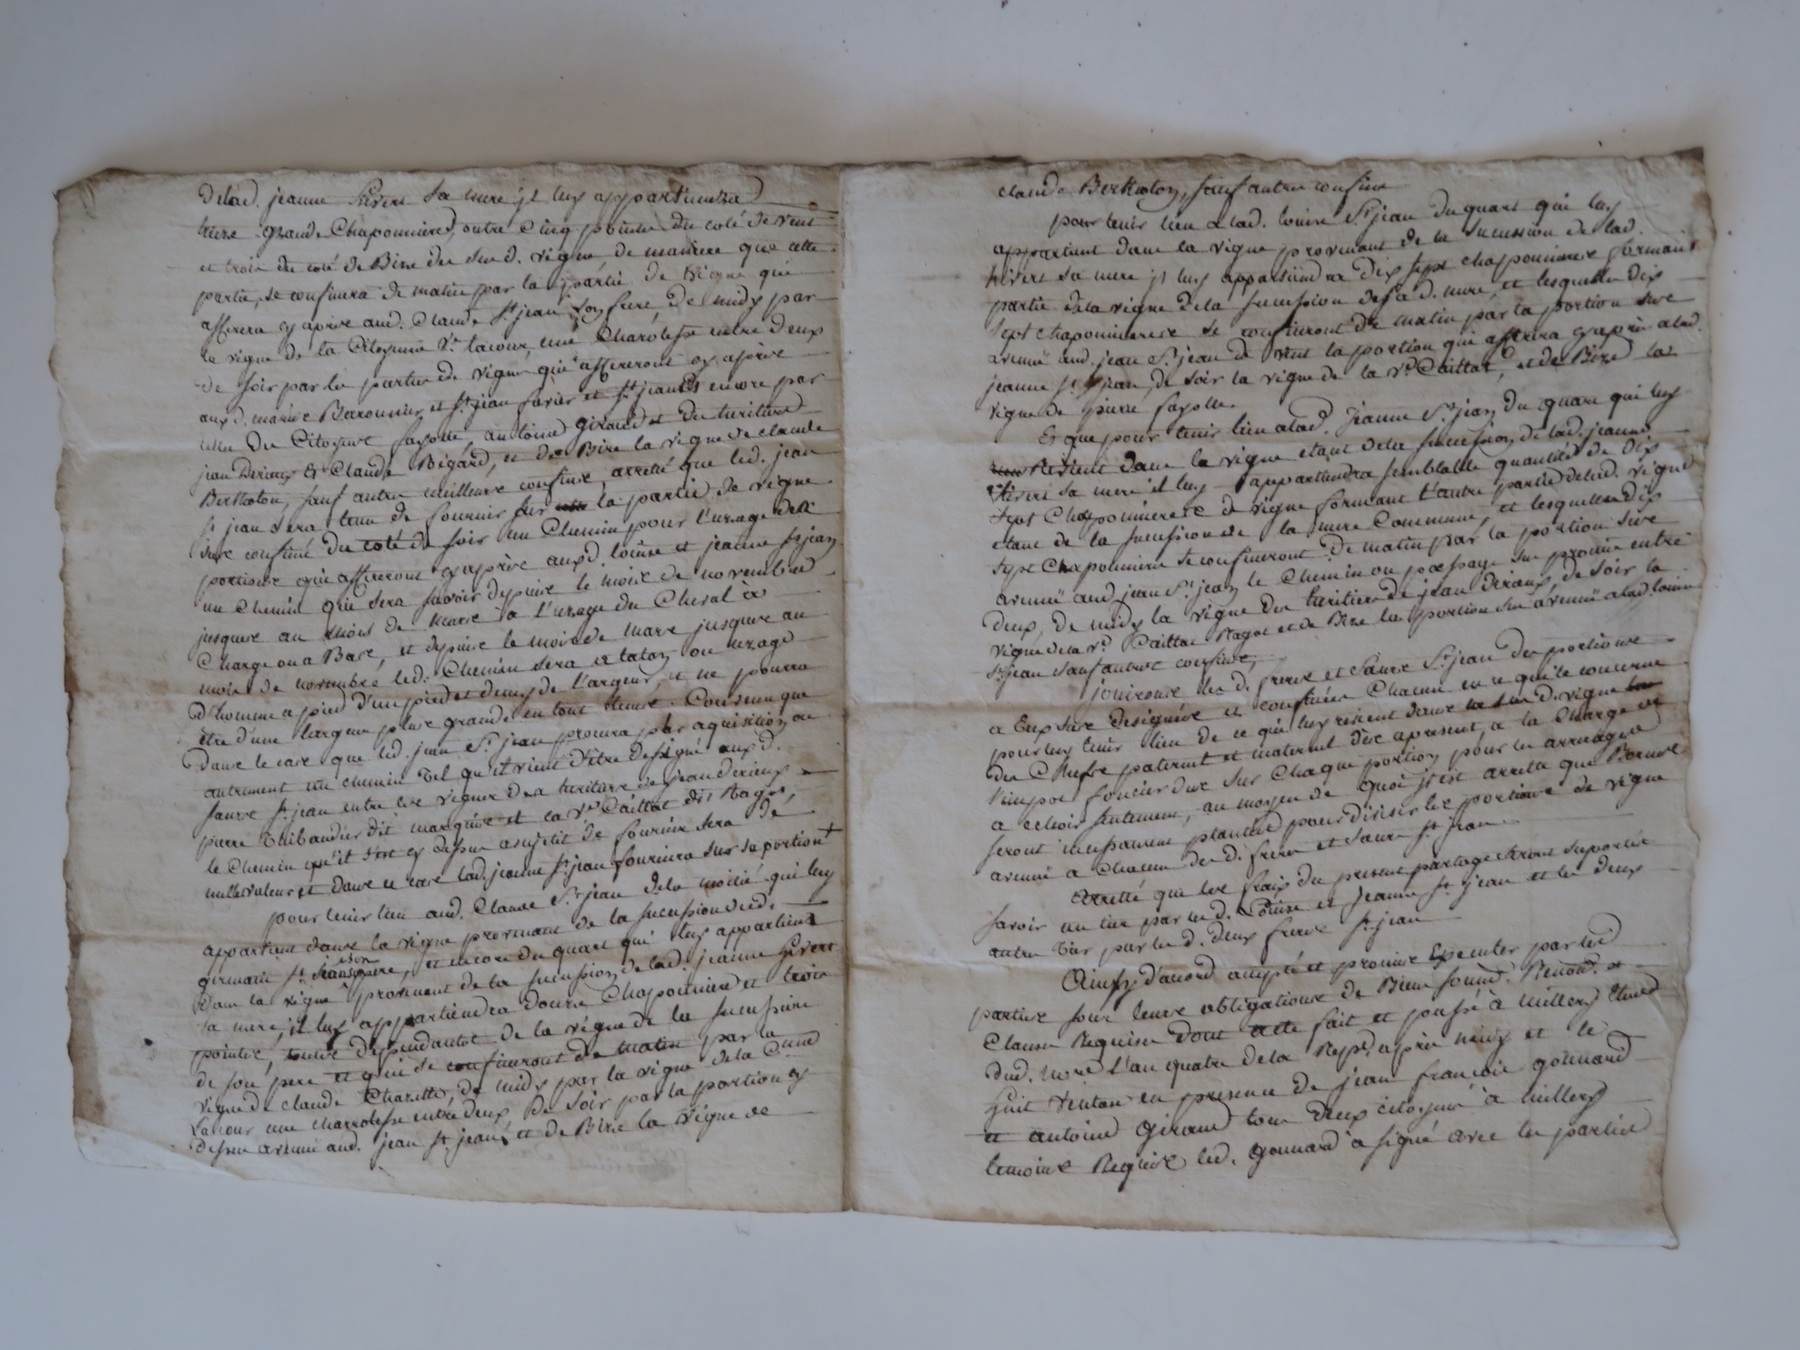 delad. jeanne hivert sa mere il luy appartiendra
treze grande Chaponniere, outre Cinq pointes du coté de vent
et trois du coté de Bize de sud. vigne de maniere que cette
partie, se confinera de matin par la partie de vigne qui
afferera cy aprés aud. Claude St jean son frere, de midy par
la vigne de la Citoyenne Ve lacour, une Charolesse entre deux
de soir par les parties de vigne qui affereront cy après
aux d. marie Baronnier et St jean
du Citoyens fayolle antoine giraud et des heritiers
jean Derieux et Claude Bégard, et de Bize la vigne de claude
Bertholon, sauf autre meilleurs confins, arreté que led. jean
St jean sera tenu de fournir sur la partie de vigne
sus confiné du coté de soir un Chemin pour l'usage des
portions qui affereront cy après aux d. loüise et jeanne St jean
un Chemin qui sera savoir depuis le mois de novembre
jusques au mois de mars à l'usage du Cheval à
Charge ou a Bast, et depuis le mois de mars jusques au
mois de novembre led. Chemin sera a talon ou usage
d'homme a pied d'un pied et demy de largeur, et ne pourra
être d'une largeur plus grande en tout tems. Convenu que
dans le cas que led. jean St jean procura par aquisition ou
autrement un chemin tel qu'il vient d'être designé aux d.
sœurs St jean entre les vignes des heritiers de jean dérieux
pierre Thibaudier dit marquis et la Ve Caillat dit Ragot,
le Chemin qu'il est cy dessus asujetit de fournir sera de
nulle valeur et dans ce cas lad. jeanne St jean fournira sur sa portion
pour tenir lieu aud. Claude St jean dela moitié qui luy
appartient dans la vigne provenant de la succession dud.
germain St jean son pere, et encore du quart qui luy appartient
dans la vigne provenent de la succession de lad. jeanne hivert
sa mere, il luy appartiendra douze Chaponniere et trois
pointes, dependantes de la vigne de la succession
de son pere et qui se confineront de matin par la
vigne de claude Charetton, de midy par la vigne de la Cenne
Lacour une charrolesse entre deux de soir par la portion cy
dessus avenue aud. jean St jean, et de Bize la vigne de
claude Bertholon, sauf autres confins
pour tenir lieu a lad. louise St jean du quart qui luy
appartient dans la vigne provenant de la succession de lad.
hivert sa mere il luy appartiendra dix sept chaponniere formant
partie dela vigne dela succession desd. mere, et lesquelles dix
sept chaponnieres se confineront de matin par la portion sus
avenue aud. jean St jean de vent la portion qui afferera cy après a lad.
jeanne St jean, de soir la vigne de la Ve Caillat, et de Bize la
vigne de pierre fayolle.
Et que pour tenir lieu a lad. jeanne St jean du quart qui luy
revient dans la vigne etant dela succession de lad. jeanne
hivert sa mere il luy appartiendra semblable quantité de dix
sept Chaponnieres de vigne formant l'autre partie de lad. vigne
etant de la succession de la mere Commune, et lesquelles dix
sept Chaponniere se confineront de matin par la portion sus
avenuë aud jean St jean le Chemin ou passage sus promis entre
deux, de midy la vigne des heritiers de jean derieux, de soir la
vigne de la Ve Caillat Ragot et de Bize la portion sus avenuë a lad. louise
St jean sauf autres confins,
jouirons les d. freres et sœurs St jean des portions
a Eux sus designées et confinées Chacun en ce qui le concerne
pour leur tenir lieu de ce qui luy revient dans la d. vigne
du Chefs paternel et maternel dès apresent, a la Charge de
l'impot foncier dus sur Chaque portion pour les arrerages
a echoir seulement, au moyen de quoi il est arretté que Bornes
seront incessament plantées pour diviser les portions de vigne
avenue a Chacun des d. freres et sœurs St jean
Arretté que les frais du present partage seront suportés
savoir un tier par les d. Loüise et jeanne St jean et les deux
autres tiers par les d. deux freres St jean
Ainsy d'acord accepté et promis executer par les
parties sous leurs obligations de Biens soumis. Renond. et
Clauses Requises dont acte fait et passé à millery Etude
dud. nore l'an quatre dela Repe après midy et le
huit ventose en presence de jean francois gonnard
et antoine Giraud tous deux citoyens à millery
temoins Requis led. gonnard a signé avec les parties